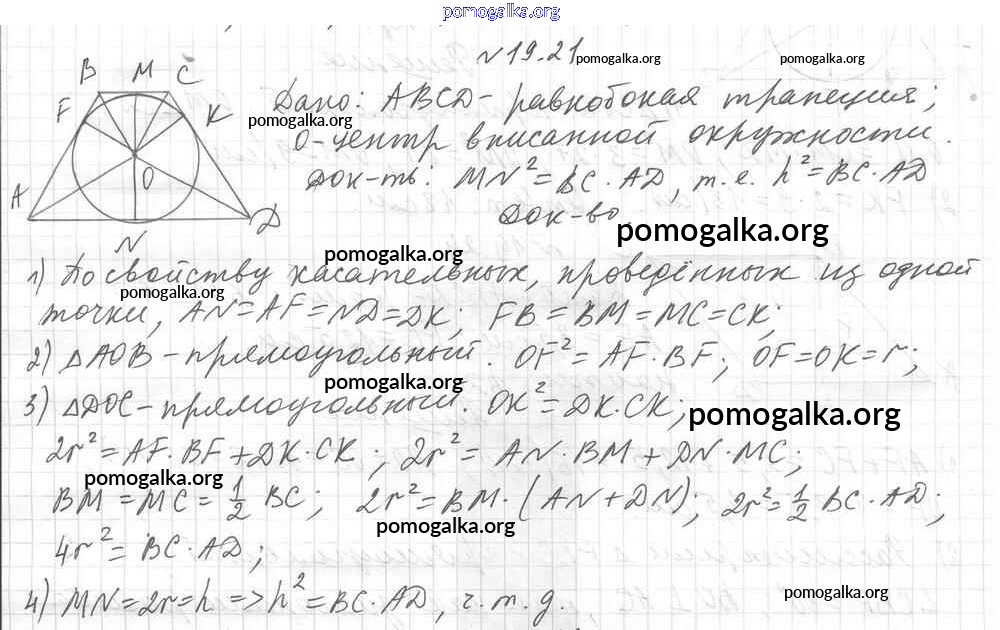 pomogalka.org
№19.21 pomogalka.org pomogalka.org
B M C
F K
A O D
N
Дано: ABCD - равнобокая трапеция;
pomogalka.org
O-центр вписанной окружности.
Док-ть: MN² = BC · AD, т.е. h² = BC · AD
Док-во.
pomogalka.org
pomogalka.org
1) По свойству касательных, проведённых из одной
pomogalka.org
точки, AN = AF = ND = DK; FB = BM = MC = CK;
2) △AOB - прямоугольный. OF² = AF · BF; OF = OK = r;
pomogalka.org
3) △DOC - прямоугольный. OK² = DK · CK;
pomogalka.org
2r² = AF · BF + DK · CK; 2r² = AN · BM + DN · MC;
pomogalka.org
BM = MC = 1/2 BC; 2r² = BM · (AN + DN); 2r² = 1/2 BC · AD;
pomogalka.org
4r² = BC · AD;
4) MN = 2r = h => h² = BC · AD, ч.т.д.
pomogalka.org